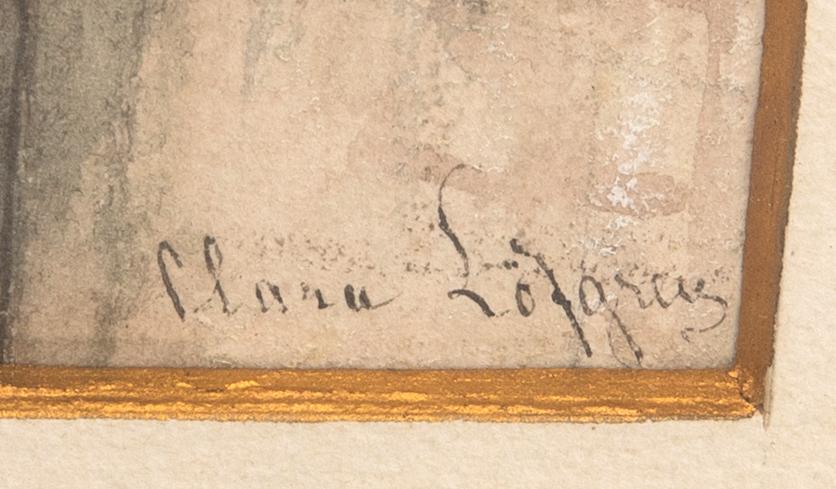 Clara Löfgren